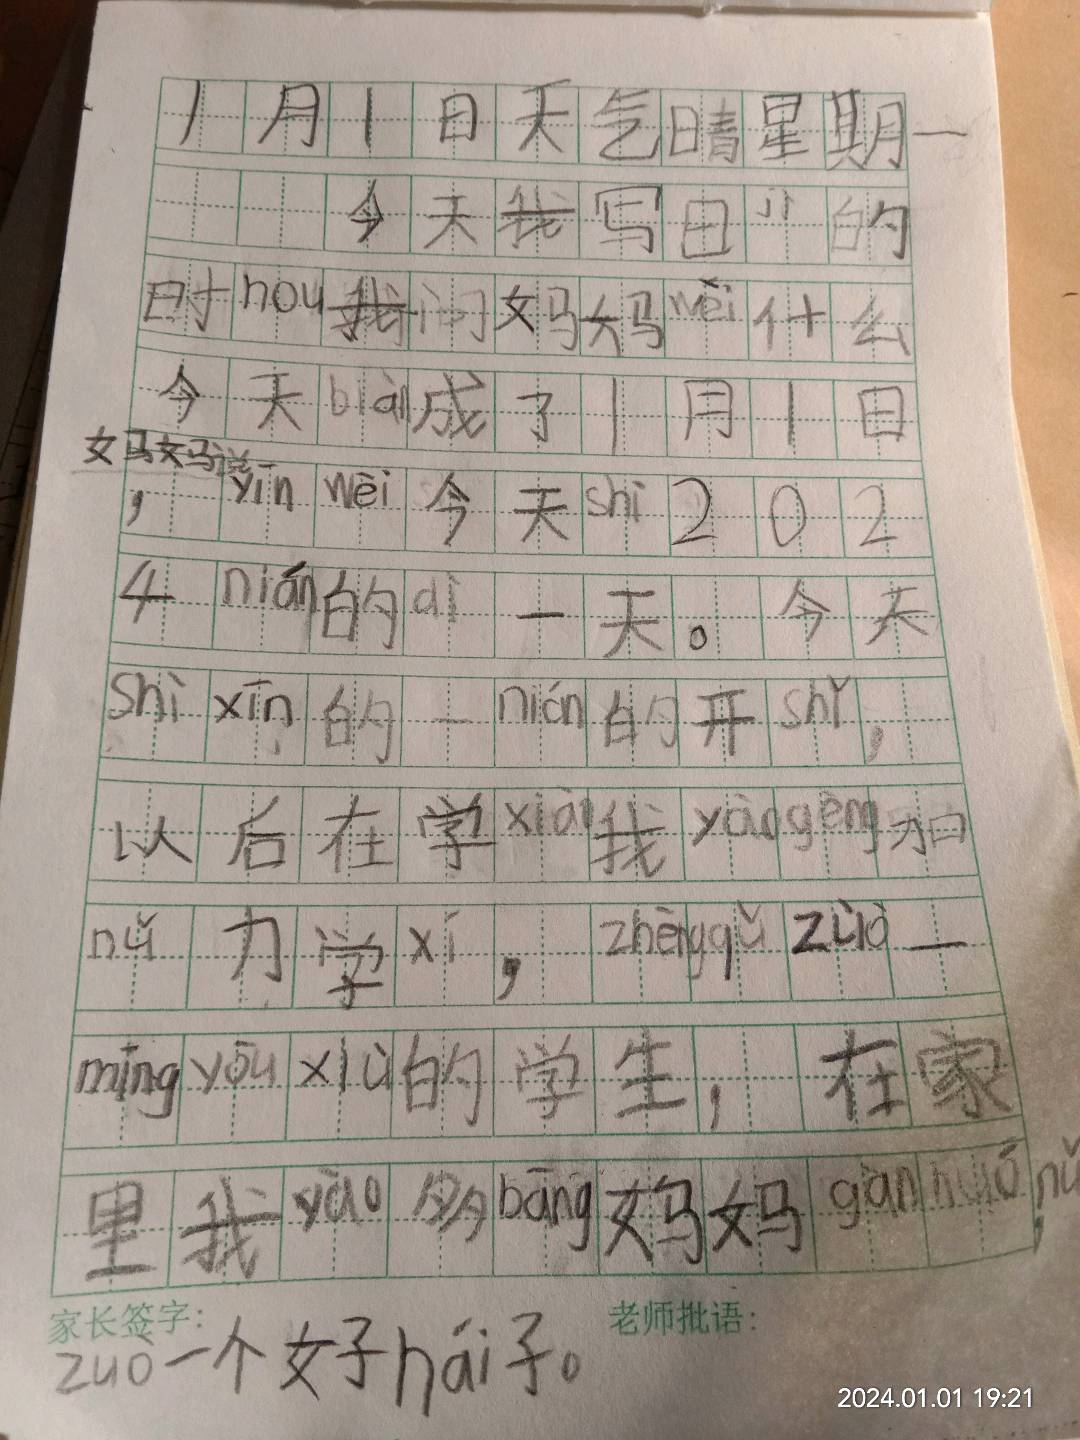 1月1日天气晴星期一
今天我写日ji的
时hou我问妈妈wèi什么
今天biàn成了1月1日
妈妈说
，yīn wèi今天shì202
4nián的dì一天。今天
shì xīn的一nián的开shǐ，
以后在学xiào我yào gèng加
nǔ力学xí，zhēng qǔ zuò一
míng yōu xiù的学生，在家
里我yào多bāng妈妈gàn huó，nǔ
家长签字： 老师批语：
zuò一个女子hái子。
2024.01.01 19:21